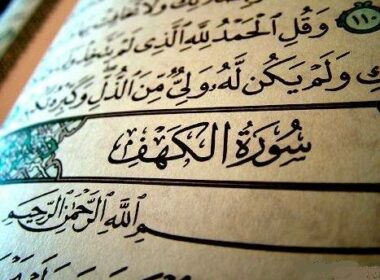 وَلَا
١١٠ وَقُلِ ٱلْحَمْدُ لِلَّهِ ٱلَّذِى لَمْ يَتَّخِذْ
وَلَمْ يَكُن لَّهُۥ وَلِىٌّ مِّنَ ٱلذُّلِّ وَكَبِّرْهُ
سُورَةُ الكَهْفِ
ٱللَّهِ ٱلرَّحْمَٰنِ ٱلرَّحِيمِ